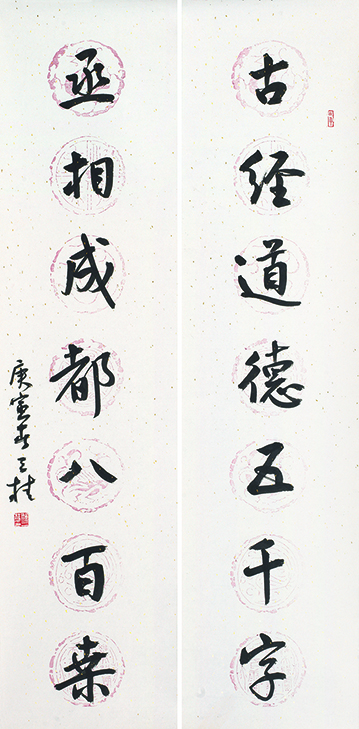 古经道德五千字
丞相成都八百桒
庚寅春三桂